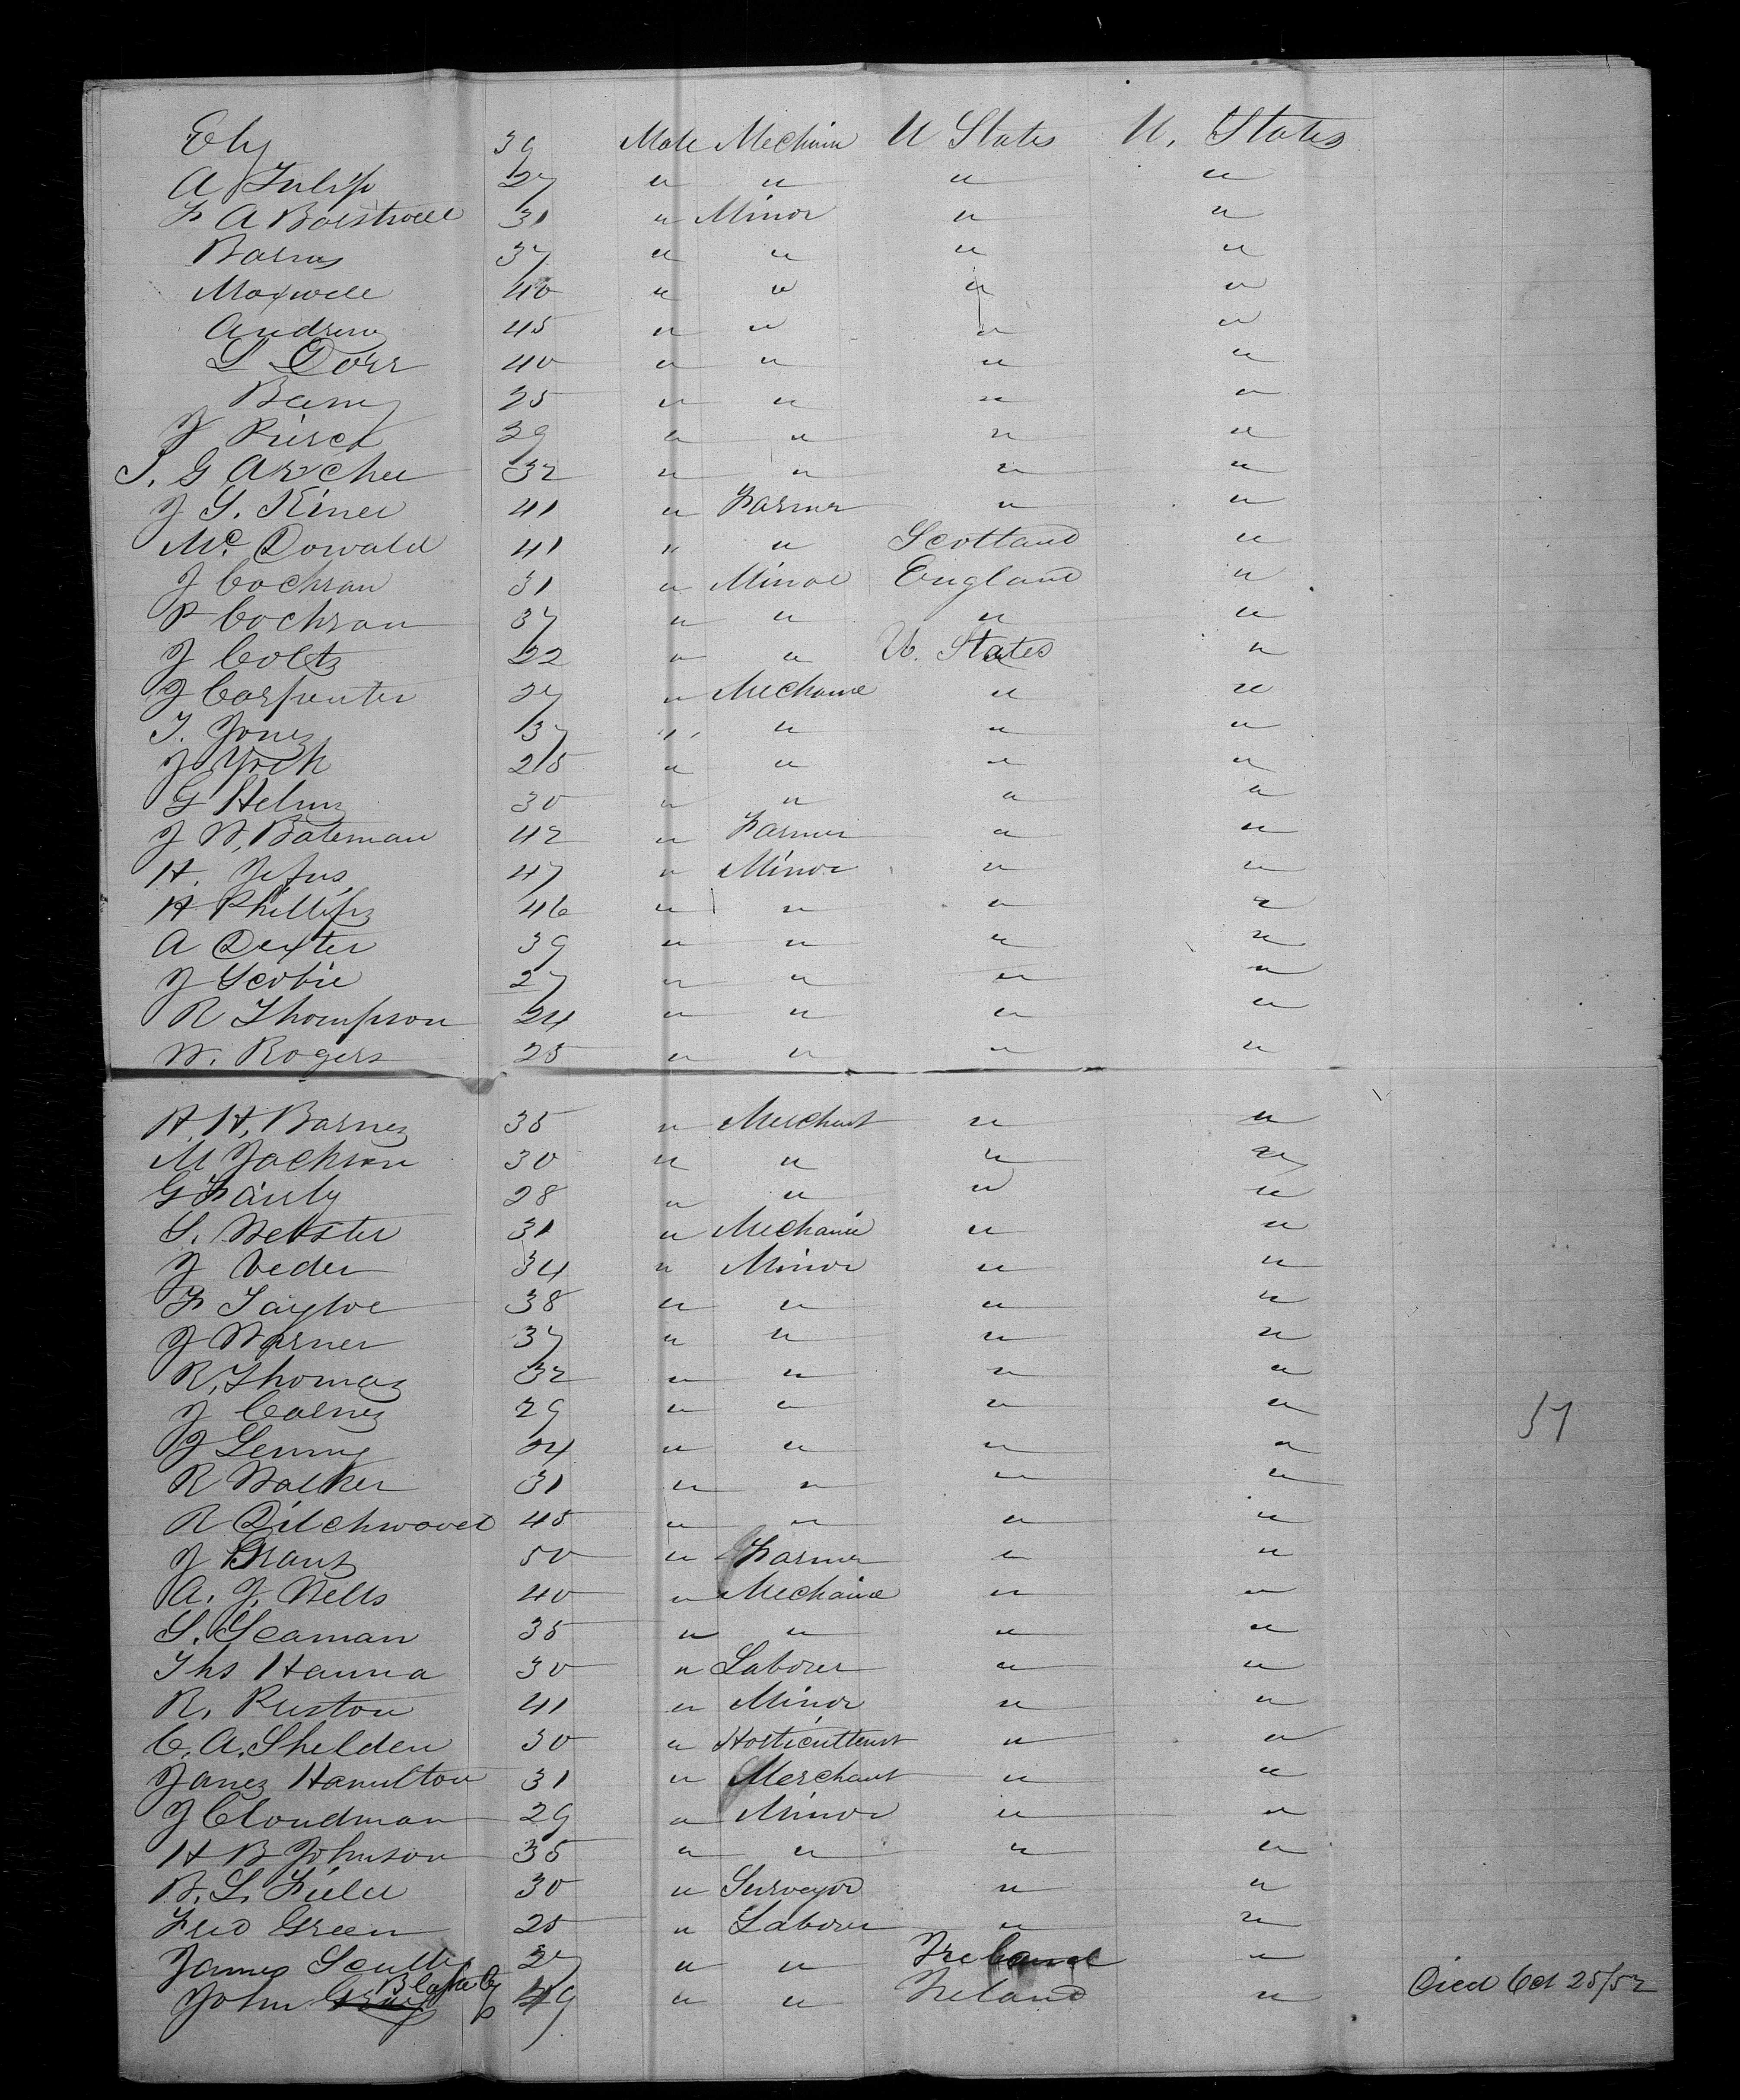 Ely 39 Male Mechanic U States U. States
A Tulip 27 " " " "
F A Bostwell 31 " Minor " "
Barns 37 " " " "
Maxwell 40 " " " "
Andrews 45 " " " "
L Dorr 40 " " " "
Barry 25 " " " "
J Pierce 29 " " " "
S. G Archer 32 " " " "
J S. Kiner 41 " Farmer " "
Mc. Dowald 41 " " Scotland "
J Cochran 31 " Minor England "
P Cochran 37 " " " "
J Colts 22 " " U. States "
J Carpenter 27 " Mechanic " "
T. Jones 37 " " " "
J York 25 " " " "
G Helms 30 " " " "
J W. Bateman 42 " Farmer " "
H. 47 " Minor " "
H Phillips 46 " " " "
A Dexter 39 " " " "
J Scobie 27 " " " "
R Thompson 24 " " " "
W. Rogers 25 " " " "
H. H. Barnes 35 " Merchant " "
M Jackson 30 " " " "
G Fairly 28 " " " "
S. Webster 31 " Mechanic " "
J Veder 34 " Minor " "
F Taylor 38 " " " "
J Warner 37 " " " "
R. Thomas 32 " " " "
J 29 " " " "
J 24 " " " "
R Walker 31 " " " "
R 45 " " " "
J Grant 50 " Farmer " "
A. J. Wells 40 " Mechanic " "
S. Seaman 35 " " " "
Ths Hanna 30 " Laborer " "
R. Ruston 41 " Minor " "
C. A. Shelden 30 " Horticulturist " "
James Hamilton 31 " Merchant " "
J Cloudman 29 " Minor " "
H B Johnson 35 " " " "
B. L. Field 30 " Surveyor " "
Fred Green 25 " Laborer " "
James Scully 27 " " Ireland "
John Gray 49 " " Ireland " Died Oct 25/52